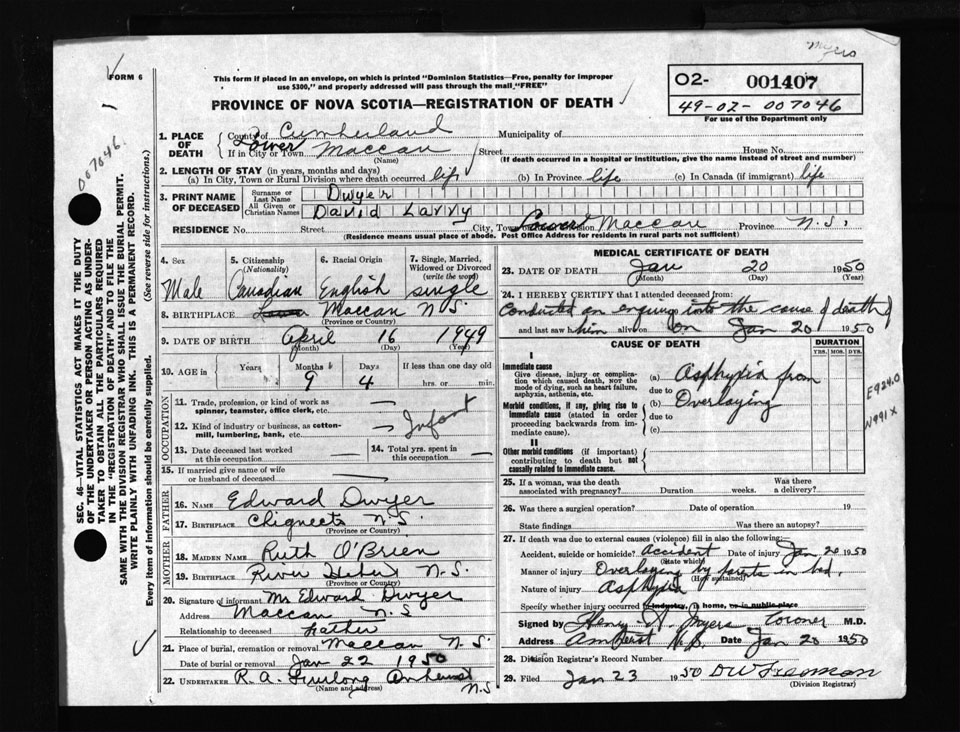 Myers
FORM 6
This form if placed in an envelope, on which is printed "Dominion Statistics—Free, penalty for improper
use $300," and properly addressed will pass through the mail "FREE"
PROVINCE OF NOVA SCOTIA—REGISTRATION OF DEATH
O2- 001407
49-02-007046
For use of the Department only
007046.
SEC. 46—VITAL STATISTICS ACT MAKES IT THE DUTY
OF THE UNDERTAKER OR PERSON ACTING AS UNDER-
TAKER TO OBTAIN ALL THE PARTICULARS REQUIRED
IN THE "REGISTRATION OF DEATH" AND TO FILE THE
SAME WITH THE DIVISION REGISTRAR WHO SHALL ISSUE THE BURIAL PERMIT.
WRITE PLAINLY WITH UNFADING INK. THIS IS A PERMANENT RECORD.
Every item of information should be carefully supplied. (See reverse side for instructions.)
1. PLACE OF DEATH
County of Cumberland Municipality of
If in City or Town Lower Maccan Street House No.
(Name) (If death occurred in a hospital or institution, give the name instead of street and number)
2. LENGTH OF STAY (in years, months and days)
(a) In City, Town or Rural Division where death occurred life (b) In Province life (c) In Canada (if immigrant) life
3. PRINT NAME OF DECEASED
Surname or Last Name Dwyer
All Given or Christian Names David Larry
RESIDENCE No. Street City, Town or Division Lower Maccan Province N.S.
(Residence means usual place of abode. Post Office Address for residents in rural parts not sufficient)
4. Sex Male
5. Citizenship (Nationality) Canadian
6. Racial Origin English
7. Single, Married, Widowed or Divorced (write the word) single
8. BIRTHPLACE Maccan N S
(Province or Country)
9. DATE OF BIRTH April 16 1949
(Month) (Day) (Year)
10. AGE in Years Months 9 Days 4 If less than one day old hrs. or min.
OCCUPATION
11. Trade, profession, or kind of work as spinner, teamster, office clerk, etc. —
12. Kind of industry or business, as cotton-mill, lumbering, bank, etc. — Infant
13. Date deceased last worked at this occupation —
14. Total yrs. spent in this occupation —
15. If married give name of wife or husband of deceased —
FATHER
16. NAME Edward Dwyer
17. BIRTHPLACE Chignecto N.S.
(Province or Country)
MOTHER
18. MAIDEN NAME Ruth O'Brien
19. BIRTHPLACE River Hebert N.S.
(Province or Country)
20. Signature of informant Mr Edward Dwyer
Address Maccan N.S
Relationship to deceased Father
21. Place of burial, cremation or removal Maccan N S.
Date of burial or removal Jan 22 1950
22. UNDERTAKER R. A. Furlong Amherst N.S
(Name and address)
MEDICAL CERTIFICATE OF DEATH
23. DATE OF DEATH Jan 20 1950
(Month) (Day) (Year)
24. I HEREBY CERTIFY that I attended deceased from:
Conducted an enquiry into the cause of death of
and last saw him alive on on Jan 20 1950
CAUSE OF DEATH
DURATION
YRS. MOS. DYS.
I
Immediate cause
Give disease, injury or complication which caused death, NOT the mode of dying, such as heart failure, asphyxia, asthenia, etc.
(a) Asphyxia from
due to
Morbid conditions, if any, giving rise to immediate cause (stated in order proceeding backwards from immediate cause).
(b) Overlaying
due to
(c)
II
Other morbid conditions (if important) contributing to death but not causally related to immediate cause.
E924.0
N991X
25. If a woman, was the death associated with pregnancy? Duration weeks. Was there a delivery?
26. Was there a surgical operation? Date of operation 19
State findings Was there an autopsy?
27. If death was due to external causes (violence) fill in also the following:
Accident, suicide or homicide? accident Date of injury Jan 20 1950
(State which)
Manner of injury Overlaying by parents in bed.
(How sustained)
Nature of injury Asphyxia
Specify whether injury occurred in industry, in home, or in public place
Signed by Henry W. Myers Coroner M.D.
Address Amherst N.S. Date Jan 20 1950
28. Division Registrar's Record Number
29. Filed Jan 23 1950 D W Freeman
(Division Registrar)